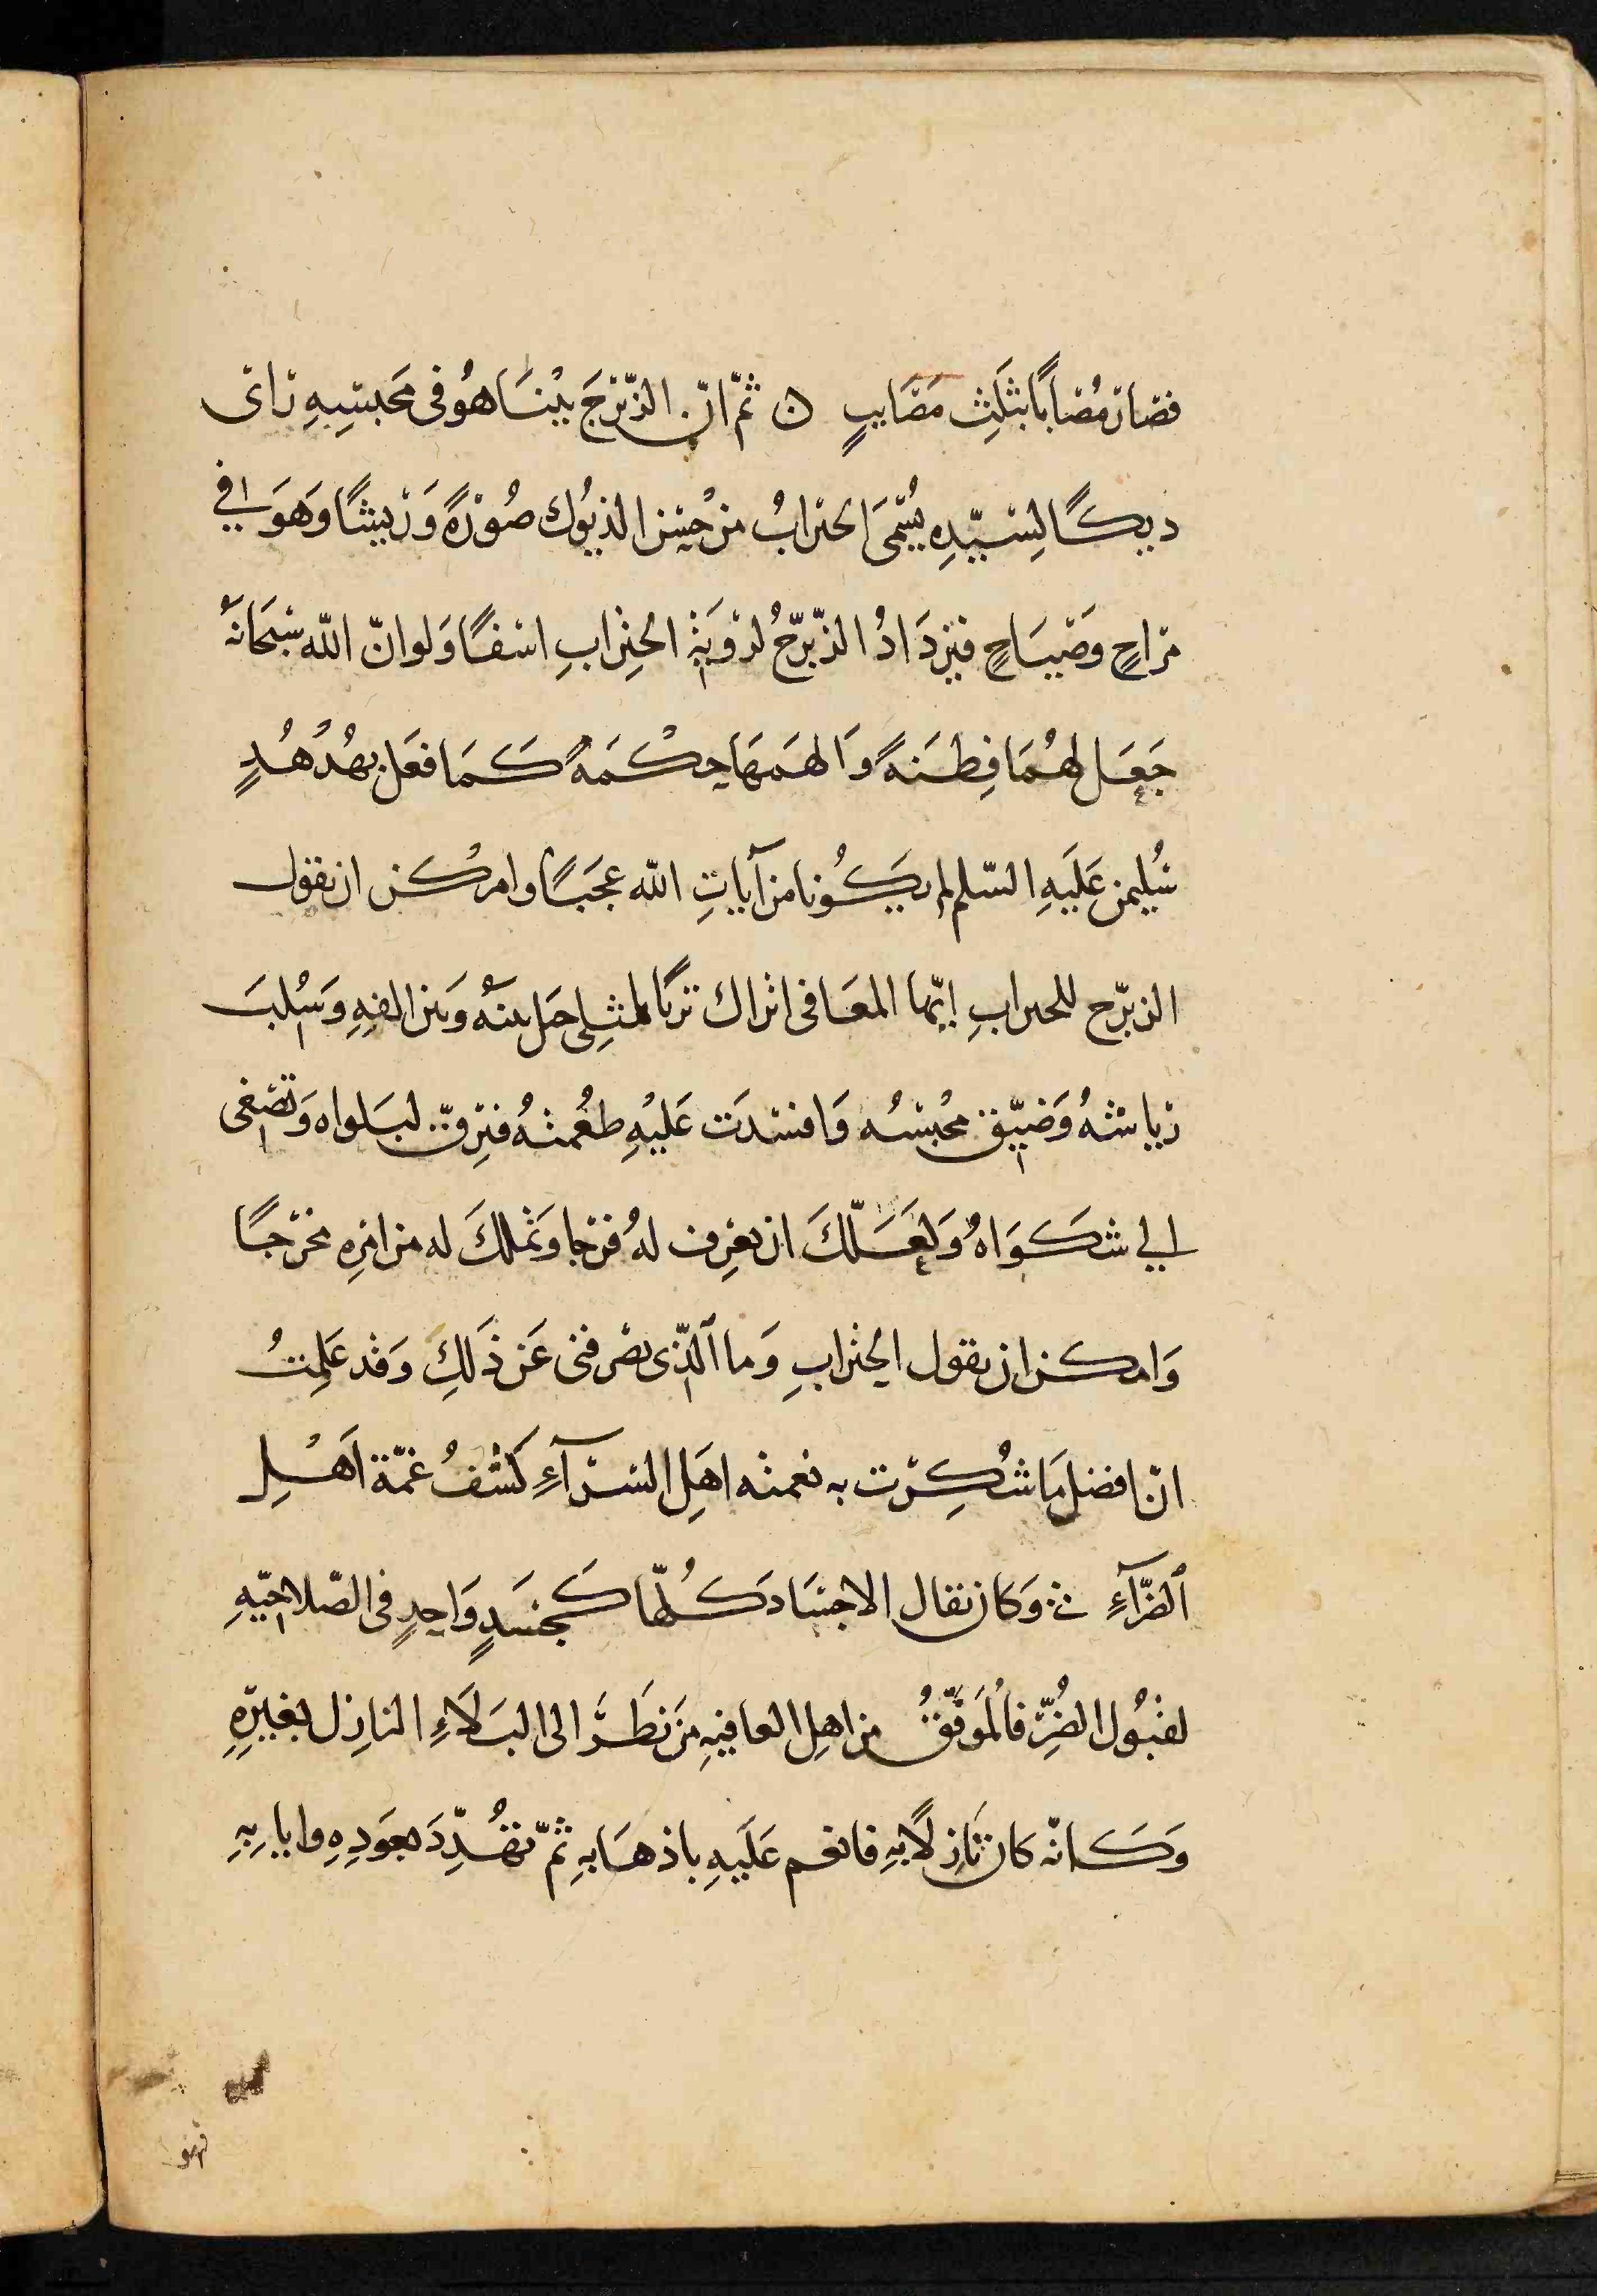 فصار مُصَابًا بثَلثِ مَصَايبٍ ۞ ثمّ انّ الزّبْرَجَ بيْنَا هُو فى مَحبسِهِ رَاى
ديكًا لسَيّدِه يُسَمّى الحنزابُ من حُسن الديُوك صُورَةً وَريشًا وَهوَ فى
مراحٍ وَصيَاحٍ فيزدَادُ الزّبرَجُ لرؤيَةِ الحِنزابِ اسَفًا وَلو انّ اللّه سُبحَانَهُ
جَعَل لهُمَا فِطنَةً وَالهمَهَا حِكْمَةً كَمَا فعَل بهُدهُدٍ
سُليمن عَلَيهِ السّلم لم يَكُونا من آياتِ اللّه عجَبًا وامكن ان يقول
الزبرّج للحنزابِ ايّها المعَافى اتراك ترِقّا لمثلِى حَل بينَه وَبين الفهِ وَسُلبَ
رياشهُ وَضيّق محبسُه وَافسَدَت عَليْهِ طُعمتهُ فترِقّ لبَلواه وَتصغى
الى شكوَاهُ وَلعَلّكَ ان تعرِف لهُ فرَجا وَتملكَ له من امرِه مخرَجًا
وَامكن ان يقول الحنزابِ وَما الّذى يصرفنى عَن ذَلكِ وَقد عَلمتُ
انّ افضل مَا شُكِرت به نعمته اهَل السّرآءِ كَشفُ غمّة اَهْل
الضّرآءِ ۞ وَكان يقال الاجسَاد كُلّها كجَسَدٍ وَاحِدٍ فى الصّلاحيّهِ
لقبُول الضُرِّ فالمُوَفّقُ من اهلِ العافيهِ مَن نَظَر الى البَلَاءِ النازِل بغيرهِ
وَكَانّه كان نازِلًا بهِ فانعم عَلَيهِ باذهَابهِ ثمّ تهُدِّدَ بعَودِهِ وايابهِ
فهو